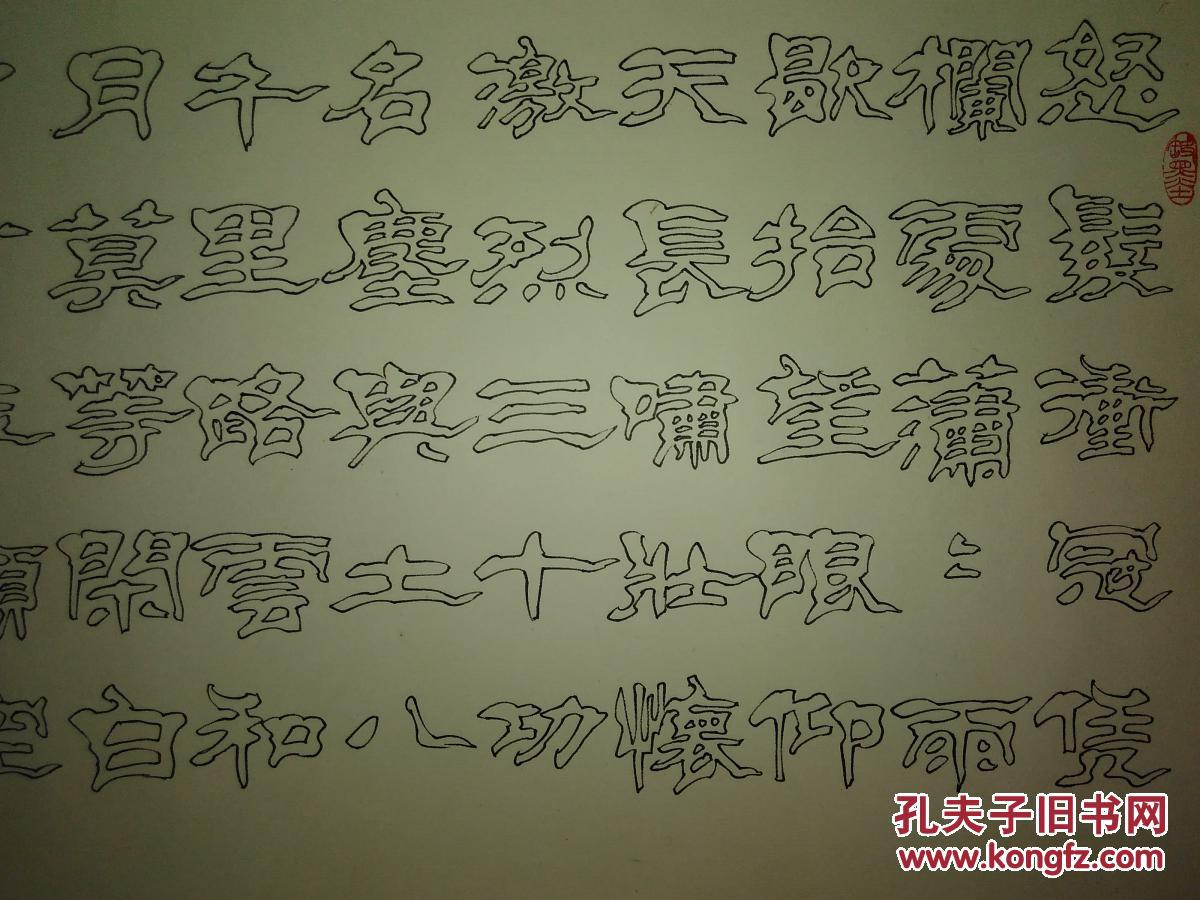 怒髮衝冠凭
欄處蕭〻雨
歇抬望眼仰
天長嘯壯懷
激烈三十功
名塵與土八
千里路雲和
月莫等閑白
孔夫子旧书网
www.kongfz.com